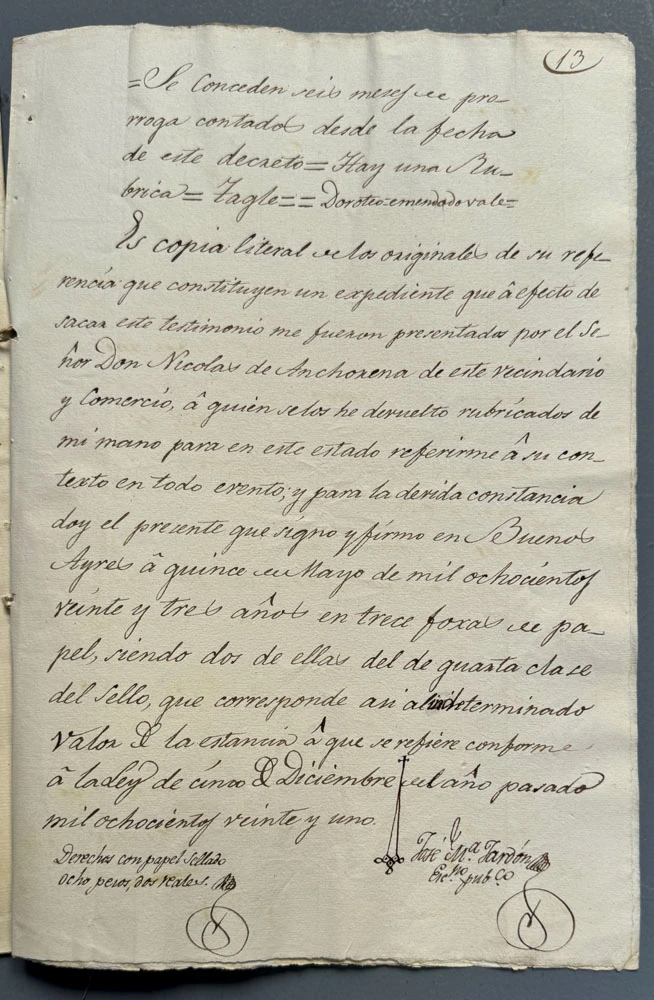 13
=Se Conceden seis meses de pro-
rroga contados desde la fecha
de este decreto = Hay una Ru-
brica = Tagle == Doroteo=emendado vale=
Es copia literal de los originales de su refe-
rencia que constituyen un expediente que â efecto de
sacar este testimonio me fueron presentados por el Se-
ñor Don Nicolas de Anchorena de este vecindario
y Comercio, â quien se los he devuelto rubricados de
mi mano para en este estado referirme â su con-
texto en todo evento; y para la devida constancia
doy el presente que signo y firmo en Buenos
Ayres â quince de Mayo de mil ochocientos
veinte y tres años en trece foxas de pa-
pel, siendo dos de ellas del de quarta clase
del Sello, que corresponde asi al indeterminado
valor de la estancia â que se refiere conforme
â la Ley de cinco de Diciembre del año pasado
mil ochocientos veinte y uno.
Derechos con papel Sellado
ocho pesos, dos reales.
José M.ª Jardón
Esc.no pub.co